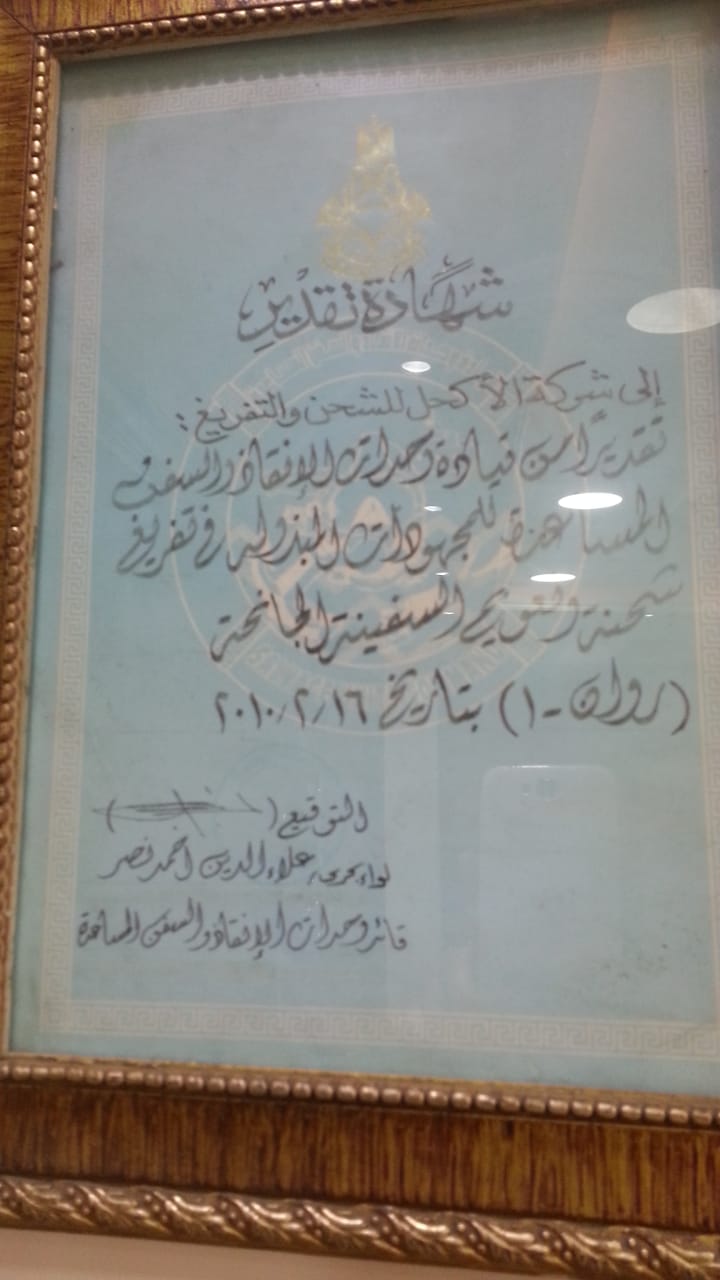 شهادة تقدير
إلى شركة الأكحل للشحن والتفريغ :
تقديرًا من قيادة وحدات الإنقاذ والسفن
المساعدة للمجهودات المبذوله في تفريغ
شحنة التعويم السفينة الجانحة
(روان - ١) بتاريخ ٢٠١٠/٢/١٦
التوقيع ( )
لواء بحرى علاء الدين أحمد نصر
قائد وحدات الإنقاذ والسفن المساعدة